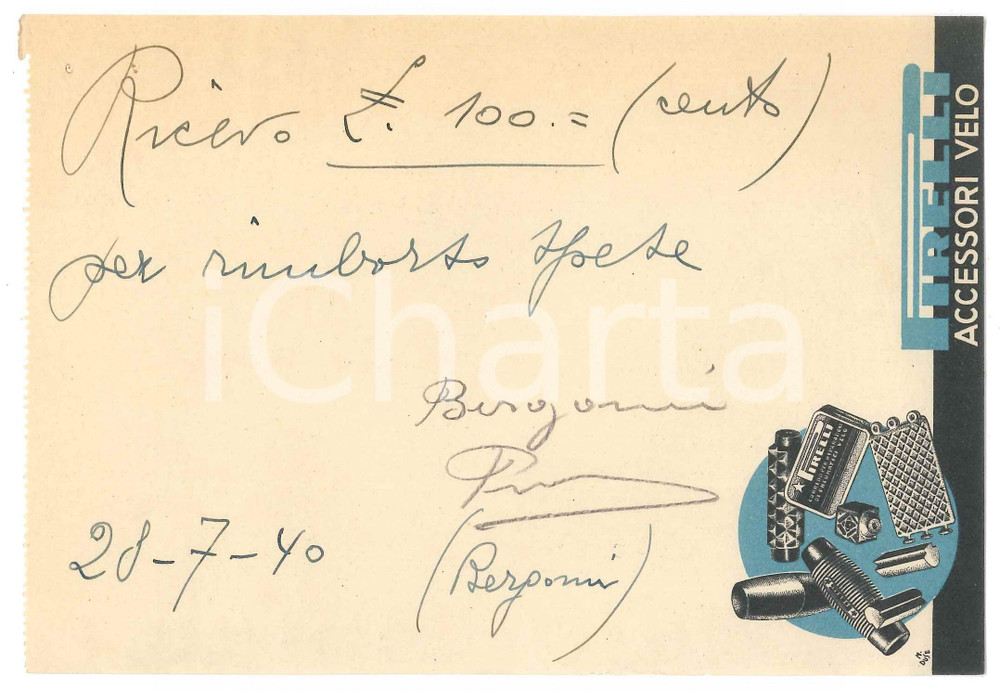 Ricevo £. 100.= (cento)
per rimborso spese
Bergomi
28-7-40
(Bergomi)
PIRELLI
ACCESSORI VELO
PIRELLI
iCharta